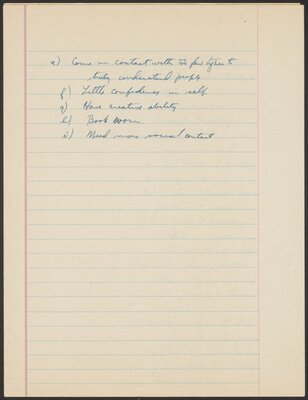 e) Come in contact with too few types to
truly understand people
f) Little confidence in self
g) Have creative ability
h) Book worm.
i) Need more social contact